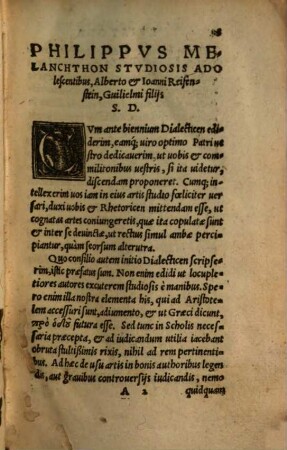 PHILIPPVS ME⸗
LANCHTHON STVDIOSIS ADO
lescentibus, Alberto & Ioanni Reifen⸗
stein, Guilielmi filijs
S. D.
CVm ante biennium Dialecticen edi
derim, eamq; uiro optimo Patri ue
stro dedicauerim, ut uobis & com
militonibus uestris, si ita uidetur,
discendam proponeret. Cumq; in⸗
tellexerim uos iam in eius artis studio fœliciter uer
sari, duxi uobis & Rhetoricen mittendam esse, ut
cognatas artes coniungeretis, quæ ita copulatæ sunt
& inter se deuinctæ, ut rectius simul ambæ perci⸗
piantur, quàm seorsum alterutra.
Quo consilio autem initio Dialecticen scripse⸗
rim, istic præfatus sum. Non enim edidi ut locuple⸗
tiores autores excuterem studiosis è manibus. Spe⸗
ro enim illa nostra elementa his, qui ad Aristote⸗
lem accessuri sunt, adiumento, & ut Græci dicunt,
futura esse. Sed tunc in Scholis neces⸗
saria præcepta, & ad iudicandum utilia iacebant
obruta stultißimis rixis, nihil ad rem pertinenti⸗
bus. Ad hæc de usu artis in bonis authoribus legen⸗
dis, aut grauibus controuersijs iudicandis, nemo
A 2 quidquam